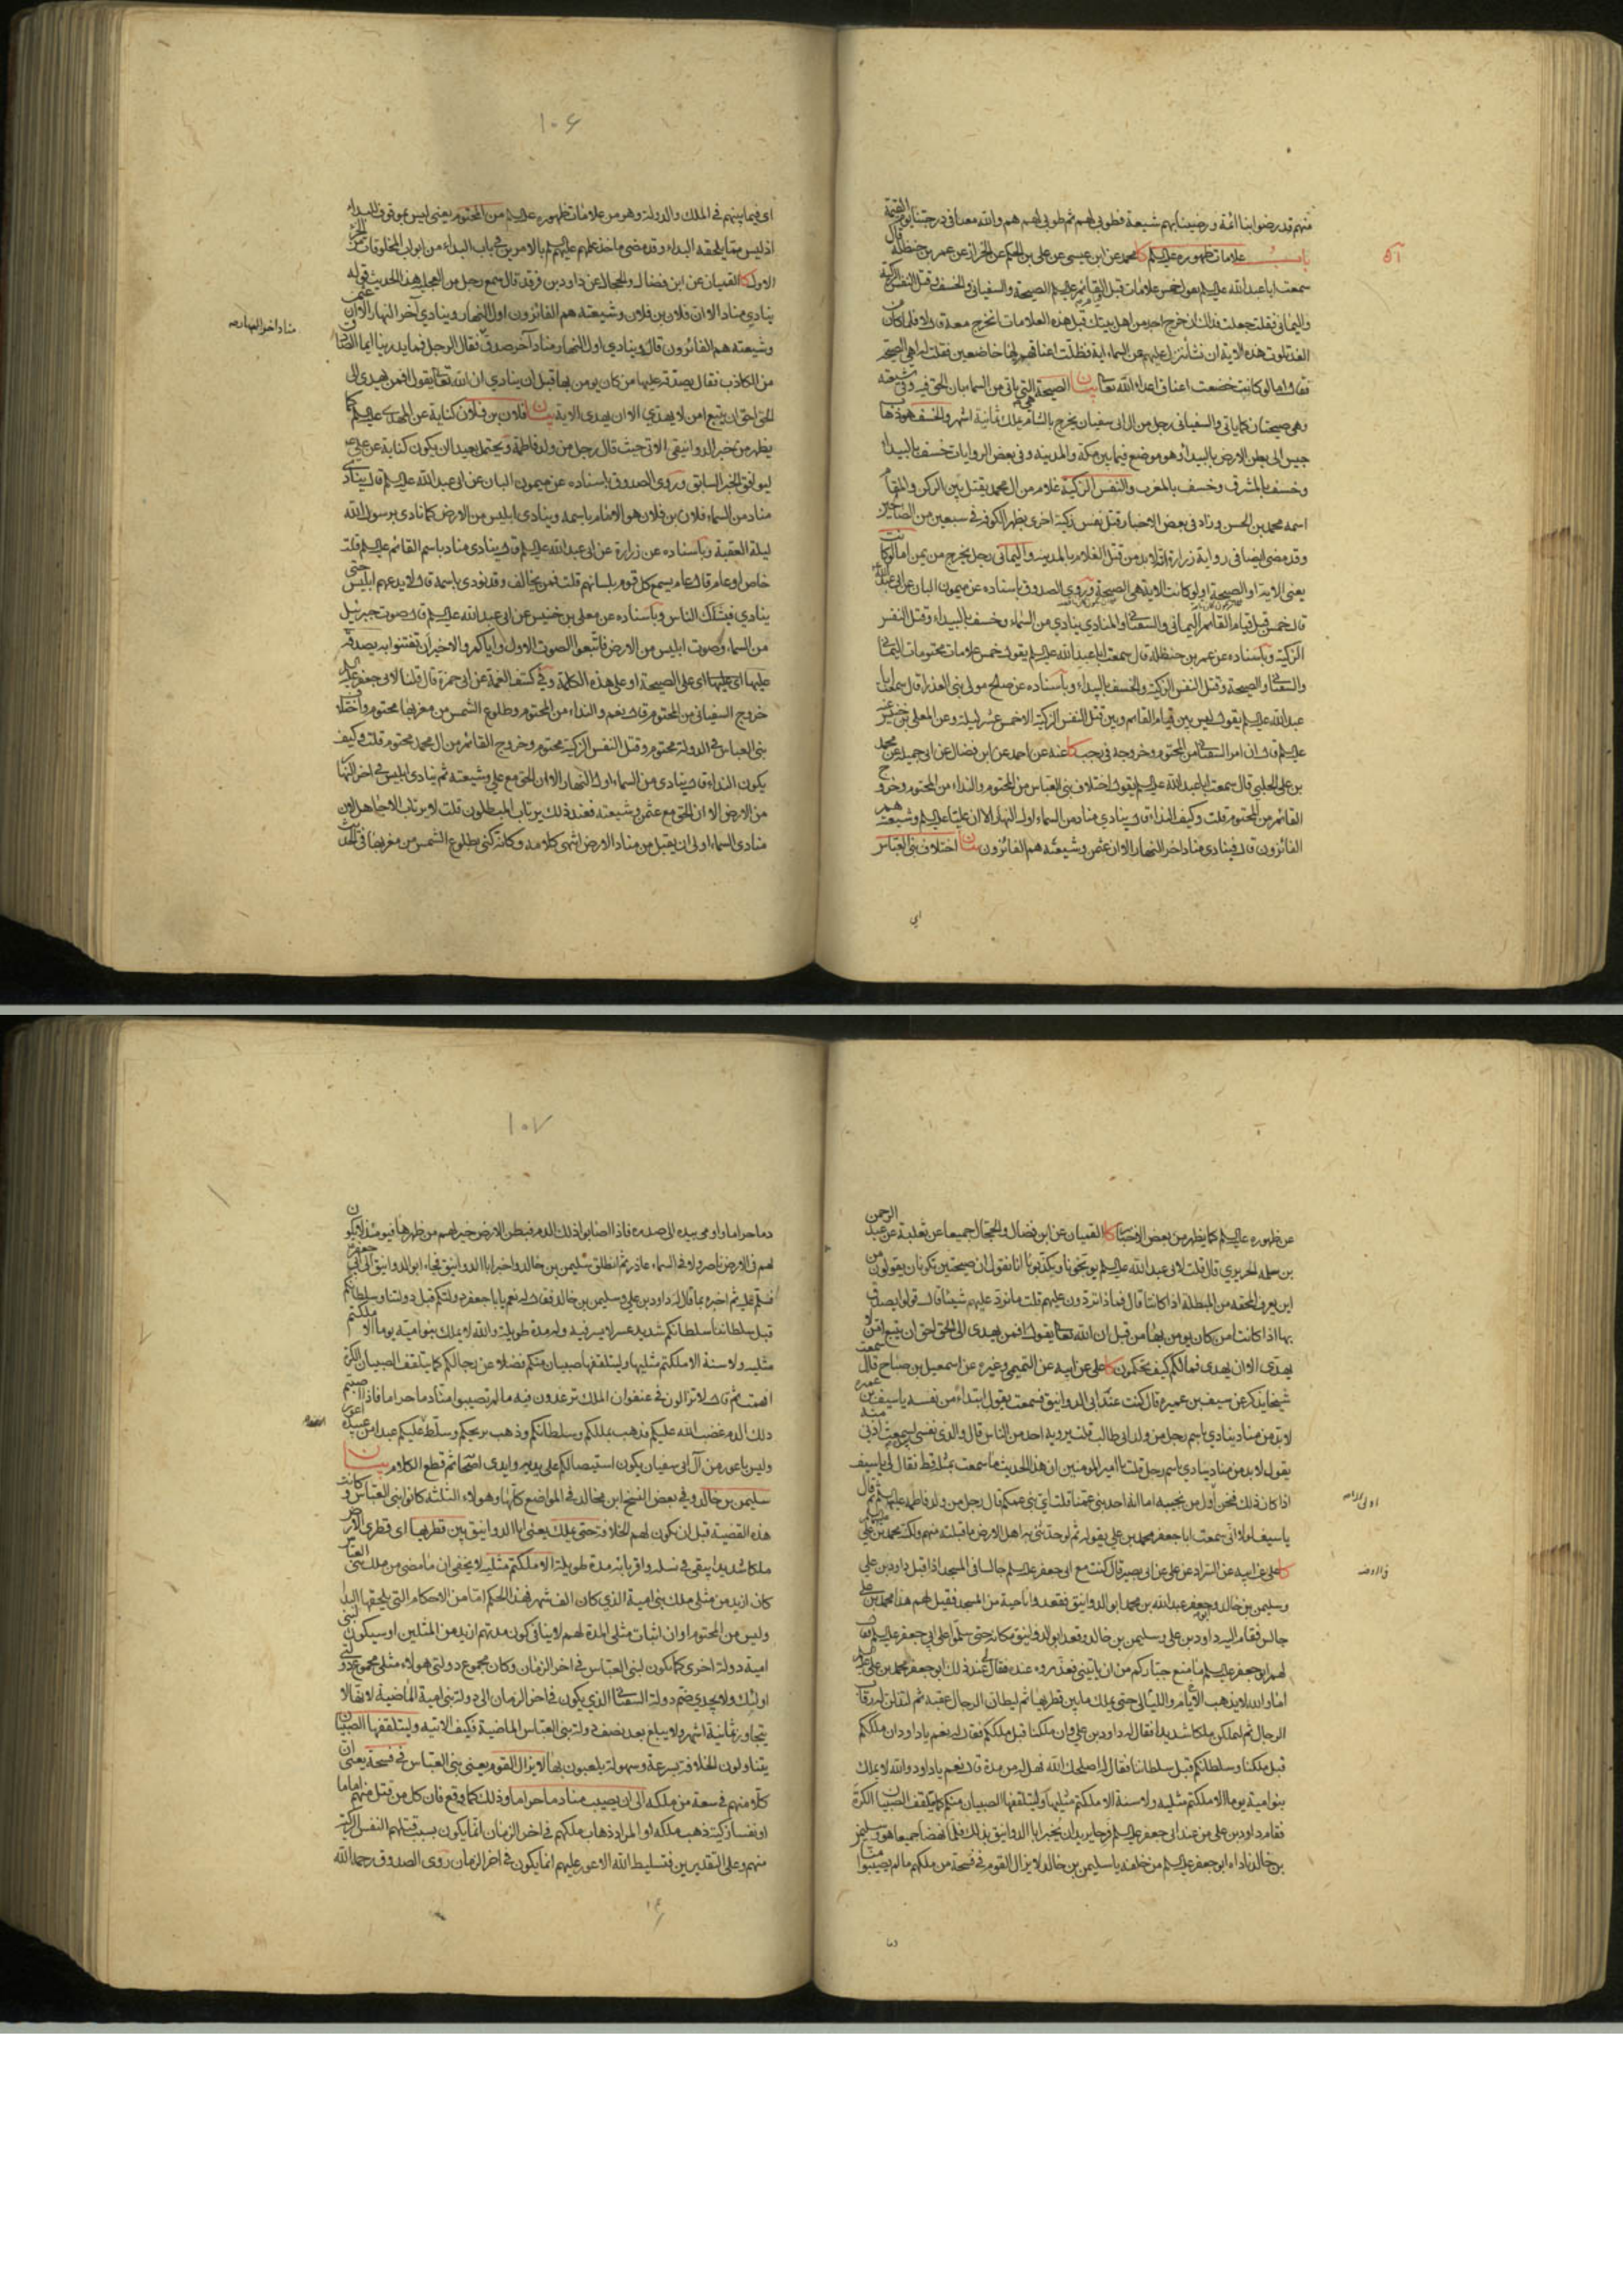 منهم قد رضوا بنا ائمة و رضينا بهم شيعة فطوبى لهم ثم طوبى لهم هم والله معنا فى درجتنا يوم القيمة
باب علامات ظهوره عليه السلم كا محمد عن ابن عيسى عن على بن الحكم عن الخراز عن عمر بن حنظلة قال
سمعت ابا عبد الله عليه السلم يقول خمس علامات قبل قيام القائم عليه السلم الصيحة والسفيانى والخسف وقتل النفس الزكية
واليمانى فقلت جعلت فداك ان خرج احد من اهل بيتك قبل هذه العلامات انخرج معه قال لا فلما كان من
الغد تلوت هذه الاية ان نشأ ننزل عليهم من السماء اية فظلت اعناقهم لها خاضعين فقلت له اهى الصيحة
فقال اما لو كانت خضعت اعناق اعداء الله تعالى بيان الصيحة هى التى ياتى من السماء بان الحق فيه وفى شيعته
وهى صيحتان كما ياتى والسفيانى رجل من ال ابى سفيان يخرج بالشام يملك ثمانية اشهر والخسف هو ذهاب
جيش الى بطن الارض بالبيداء وهو موضع فيما بين مكة والمدينة وفى بعض الروايات خسف بالبيداء
وخسف بالمشرق وخسف بالمغرب والنفس الزكية غلام من ال محمد يقتل بين الركن والمقام
اسمه محمد بن الحسن وزاد فى بعض الاخبار قتل نفس زكية اخرى بظهر الكوفة فى سبعين من الصالحين
وقد مضى ايضا فى رواية زرارة انه لابد من قتل الغلام بالمدينة واليمانى رجل يخرج من يمن اما لو كانت
يعنى الاية او الصيحة اى لو كانت الاية هى الصيحة وروى الصدوق باسناده عن ميمون البان عن ابى عبد الله
قال خمس قبل قيام القائم اليمانى والسفيانى والمنادى ينادى من السماء وخسف بالبيداء وقتل النفس
الزكية وباسناده عن عمر بن حنظلة قال سمعت ابا عبد الله عليه السلم يقول خمس علامات محتومات اليمانى
والسفيانى والصيحة وقتل النفس الزكية والخسف بالبيداء وباسناده عن صالح مولى بنى العذراء قال سمعت ابا
عبد الله عليه السلم يقول ليس بين قيام القائم وبين قتل النفس الزكية الا خمس عشر ليلة وعن المعلى بن خنيس عنه
عليه السلم قال ان امر السفيانى من المحتوم وخروجه فى رجب كا عنه عن احمد عن ابن فضال عن ابى جميلة عن محمد
بن على الحلبى قال سمعت ابا عبد الله عليه السلم يقول اختلاف بنى العباس من المحتوم والنداء من المحتوم وخروج
القائم من المحتوم قلت وكيف النداء قال ينادى مناد من السماء اول النهار الا ان عليا عليه السلم وشيعته هم
الفائزون قال فينادى مناد اخر النهار الا ان عثمن وشيعته هم الفائزون بيان اختلاف بنى العباس
اى
١٠٦
اى فيما بينهم فى الملك والدولة وهو من علامات ظهوره عليه السلم من المحتوم يعنى ليس بموقوف للبداء
اذ ليس مما يلحقه البداء وقد مضى ماخذ علمهم عليهم السلم بالامرين فى باب البداء من ابواب المخلوقات من الجزء
الاول كا القميان عن ابن فضال والحجال عن داود بن فرقد قال سمع رجل من العجلية هذا الحديث قوله
ينادى مناد الا ان فلان بن فلان وشيعته هم الفائزون اول النهار وينادى آخر النهار الا ان عثمن
وشيعته هم الفائزون قال وينادى اول النهار مناد آخر صدق فقال الرجل فما يدرينا ايما الصادق
مناد اخر النهار صح
من الكاذب فقال يصدقه عليها من كان يومن بها قبل ان ينادى ان الله تعالى يقول افمن يهدى الى
الحق احق ان يتبع امن لا يهدى الا ان يهدى الاية بيان فلان بن فلان كناية عن المهدى عليه السلم كما
يظهر من خبر الدوانيقى الاتى حيث قال رجل من ولد فاطمة ويحتمل بعيدا ان يكون كناية عن على
ليوافق الخبر السابق وروى الصدوق باسناده عن ميمون البان عن ابى عبد الله عليه السلم قال ينادى
مناد من السماء فلان بن فلان هو الامام باسمه وينادى ابليس من الارض كما نادى برسول الله
ليلة العقبة وباسناده عن زرارة عن ابى عبد الله عليه السلم قال ينادى مناد باسم القائم عليه السلم قلت
خاص او عام قال عام يسمع كل قوم بلسانهم قلت فمن يخالف وقد نودى باسمه قال لا يدعهم ابليس حتى
ينادى فيشكك الناس وباسناده عن معلى بن خنيس عن ابى عبد الله عليه السلم قال صوت جبرئيل
من السماء وصوت ابليس من الارض فاتبعوا الصوت الاول واياكم والاخير ان تفتتنوا به يصدقه
عليها اى عليها اى على الصيحة او على هذه الكلمة وفى كشف الغمة عن ابى حمزة قال قلنا لابى جعفر عليه السلم
خروج السفيانى من المحتوم قال نعم والنداء من المحتوم وطلوع الشمس من مغربها محتوم واختلاف
بنى العباس فى الدولة محتوم وقتل النفس الزكية محتوم وخروج القائم من ال محمد محتوم قلت وكيف
يكون النداء قال ينادى من السماء اول النهار الا ان الحق مع على وشيعته ثم ينادى ابليس فى اخر النهار
من الارض الا ان الحق مع عثمن وشيعته فعند ذلك يرتاب المبطلون قلت لا يرتاب الا جاهل لان
منادى السماء اولى ان يقبل من مناد الارض انتهى كلامه وكانه كنى بطلوع الشمس من مغربها فى الحديث
عن ظهوره عليه السلم كما يظهر من بعض الاخبار كا القميان عن ابن فضال والحجال جميعا عن ثعلبة عن عبد الرحمن
بن مسلمة الجريرى قال قلت لابى عبد الله عليه السلم يوبخونا ويكذبونا انا نقول ان صيحتين تكونان يقولون من
اين يعرف المحقه من المبطلة اذا كانتا قال فماذا تردون عليهم قلت ما نرد عليهم شيئا قال قولوا يصدق
بها اذا كانت من كان يومن بها من قبل ان الله تعالى يقول افمن يهدى الى الحق احق ان يتبع امن لا
يهدى الا ان يهدى فما لكم كيف تحكمون كا على عن ابيه عن التميمى وغيره عن اسمعيل بن صباح قال سمعت
شيخا يذكر عن سيف بن عميرة قال كنت عند ابى الدوانيق فسمعته يقول ابتداءً من نفسه يا سيف بن عميره
لابد من مناد ينادى باسم رجل من ولد ابى طالب قلت يرويه احد من الناس قال والذى نفسى بيده لسمعت اذنى منه
يقول لابد من مناد ينادى باسم رجل قلت يا امير المومنين ان هذا الحديث ما سمعت بمثله قط فقال لى يا سيف
اذا كان ذلك فنحن اول من يجيبه اما انه احد بنى عمنا قلت اى بنى عمكم قال رجل من ولد فاطمة عليها السلم ثم قال
يا سيف لولا انى سمعت ابا جعفر محمد بن على يقوله ثم لو حدثنى به اهل الارض ما قبلته منهم ولكنه محمد بن على
كا على عن ابيه عن السراد عن على عن ابى بصير قال كنت مع ابى جعفر عليه السلم جالسا فى المسجد اذ اقبل داود بن على
وسليمن بن خالد وابو جعفر عبد الله بن محمد ابو الدوانيق فقعدوا ناحية من المسجد فقيل لهم هذا محمد بن على
جالس فقام اليه داود بن على وسليمن بن خالد وقعد ابو الدوانيق مكانه حتى سلموا على ابى جعفر عليه السلم فقال
لهم ابو جعفر عليه السلم ما منع جباركم من ان ياتينى فعذروه عنده فقال عند ذلك ابو جعفر محمد بن على عليه السلم
اما والله لا يذهب الايام والليالى حتى يملك ما بين قطريها ثم ليطان الرجال عقبه ثم لتذلن له رقاب
الرجال ثم ليملكن ملكا شديدا فقال له داود بن على وان ملكنا قبل ملككم فقال له نعم يا داود ان ملككم
قبل ملكنا وسلطانكم قبل سلطاننا فقال له اصلحك الله فهل له من مدة قال نعم يا داود والله لا يملك
بنو امية يوما الا ملكتم مثليه ولا سنة الا ملكتم مثليها وليتلقفها الصبيان منكم كما يتلقف الصبيان الكرة
فقام داود بن على من عند ابى جعفر عليه السلم فرحا يريد ان يخبر ابا الدوانيق بذلك فلما نهضا جميعا هو وسليمن
بن خالد ناداه ابو جعفر عليه السلم من خلفه يا سليمن بن خالد لا يزال القوم فى فسحة من ملكهم ما لم يصيبوا منا
دما
١٠٧
دما حراما واومى بيده الى صدره فاذا اصابوا ذلك الدم فبطن الارض خير لهم من ظهرها فيومئذ لا يكون
لهم فى الارض ناصر ولا فى السماء عاذر ثم انطلق سليمن بن خالد واخبر ابا الدوانيق فجاء ابو الدوانيق الى ابى جعفر
فسلم عليه ثم اخبره بما قال له داود بن على وسليمن بن خالد فقال له نعم يا ابا جعفر دولتكم قبل دولتنا وسلطانكم
قبل سلطاننا سلطانكم شديد عسر لا يسر فيه وله مدة طويلة والله لا يملك بنو امية يوما الا ملكتم
مثليه ولا سنة الا ملكتم مثليها وليتلقفها صبيان منكم فضلا عن رجالكم كما يتلقف الصبيان الكرة
افهمت ثم قال لا تزالون فى عنفوان الملك ترغدون فيه ما لم تصيبوا منا دما حراما فاذا اصبتم
ذلك الدم غضب الله عليكم فذهب بملككم وسلطانكم وذهب بريحكم وسلط عليكم عبدا من عبيده اعور
وليس باعور من آل ابى سفيان يكون استيصالكم على يديه وايدى اصحابه ثم قطع الكلام بيان
سليمن بن خالد وفى بعض النسخ ابن مخالد فى المواضع كلها وهولاء الثلثة كانوا بنى العباس وكانت
هذه القضية قبل ان يكون لهم الخلافة حتى يملك يعنى ابا الدوانيق بين قطريها اى قطرى الارض
ملكا شديدا يبقى فى نسله واقربائه مدة طويلة الا ملكتم مثليه لا يخفى ان ما مضى من ملك بنى العباس
كان ازيد من مثلى ملك بنى امية الذى كان الف شهر فهذا الحكم اما من الاحكام التى يلحقها البداء
وليس من المحتوم او ان اثبات مثلى المدة لهم لا ينافى كون مدتهم ازيد من المثلين او سيكون لبنى
امية دولة اخرى كما يكون لبنى العباس فى اخر الزمان وكان مجموع دولتى هولاء مثلى مجموع دولتى
اولئك ولا يجدى ضم دولة السفيانى الذى يكون فى اخر الزمان الى دولة بنى امية الماضية لانها لا
يتجاوز ثمانية اشهر ولا يبلغ بعد نصف دولة بنى العباس الماضية فكيف الاتيه وليتلقفها الصبيان
يتناولون الخلافة بسرعة وسهولة يلعبون بها لا يزال القوم يعنى بنى العباس فى فسحة يعنى ان
كلا منهم فى سعة من ملكه الى ان يصيب منا دما حراما وذلك كما وقع فان كل من قتل منهم اماما
او نفسا زكية ذهب ملكه او المراد ذهاب ملكهم فى اخر الزمان انما يكون بسبب قتلهم النفس الزكية
منهم وعلى التقديرين فتسليط الله الاعور عليهم انما يكون فى اخر الزمان روى الصدوق رحمه الله